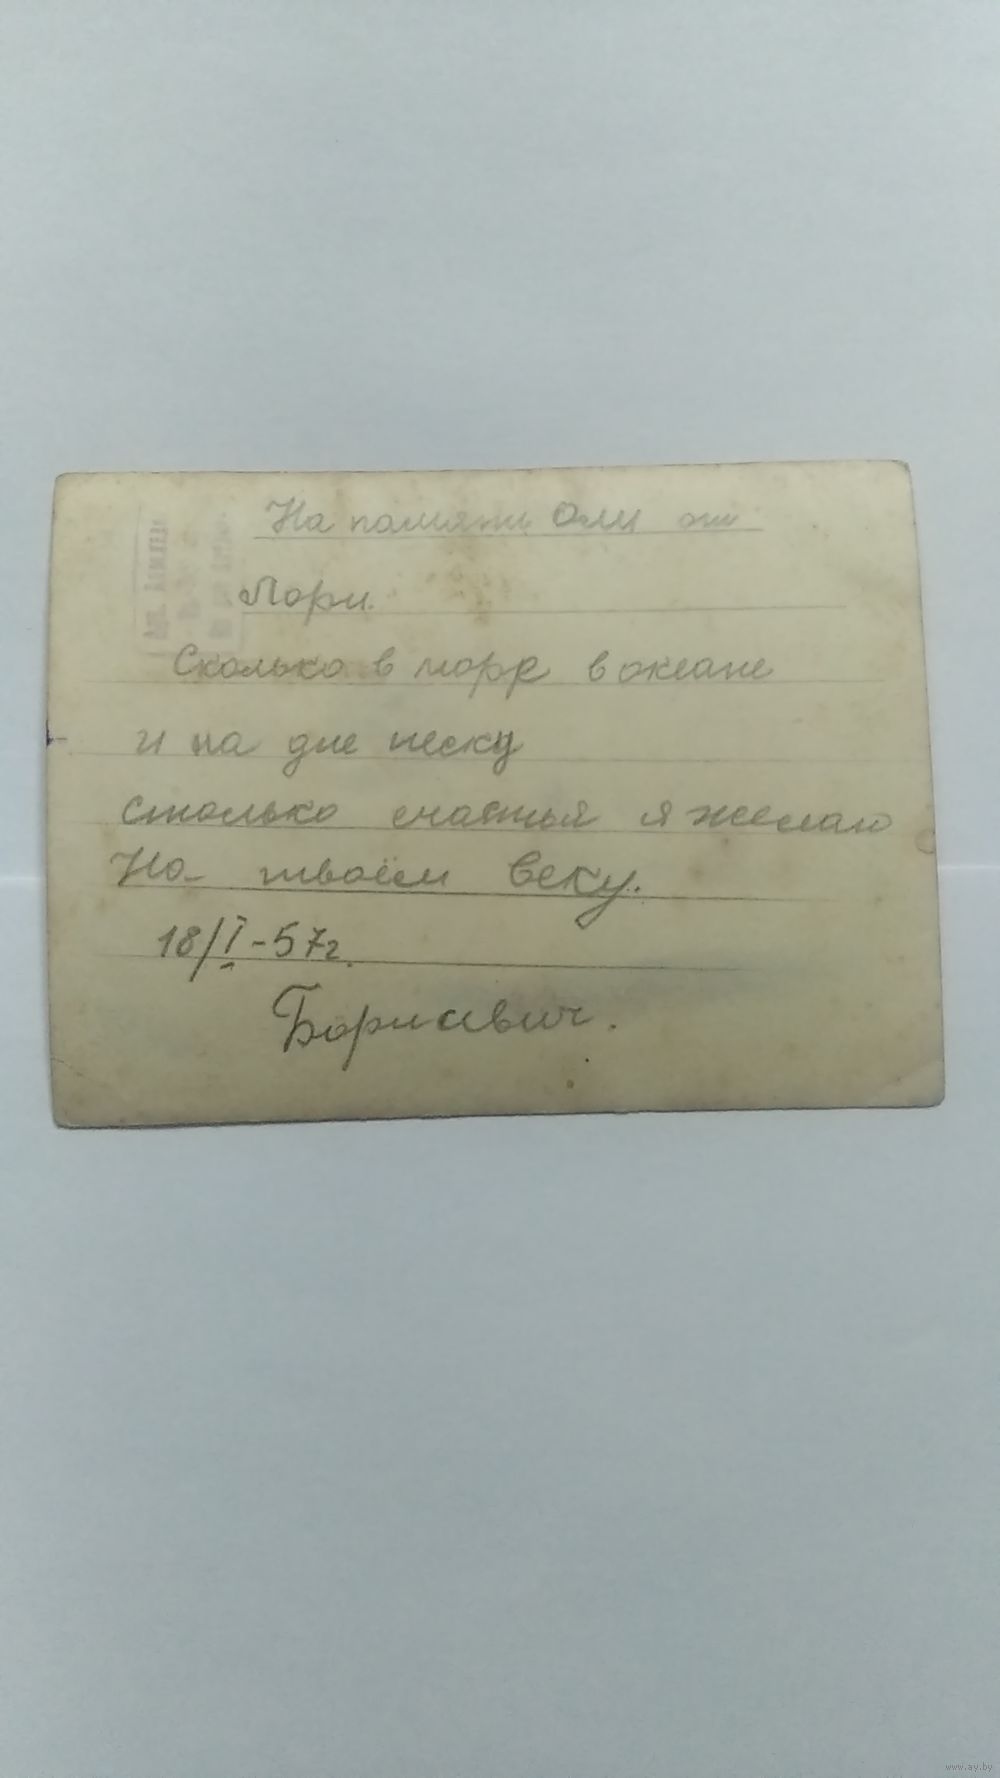 На память Оли от
Лори.
Сколько в море в океане
и на дне песку
столько счастья я желаю
На твоём веку.
18/I-57г.
Борисевич.
www.ay.by